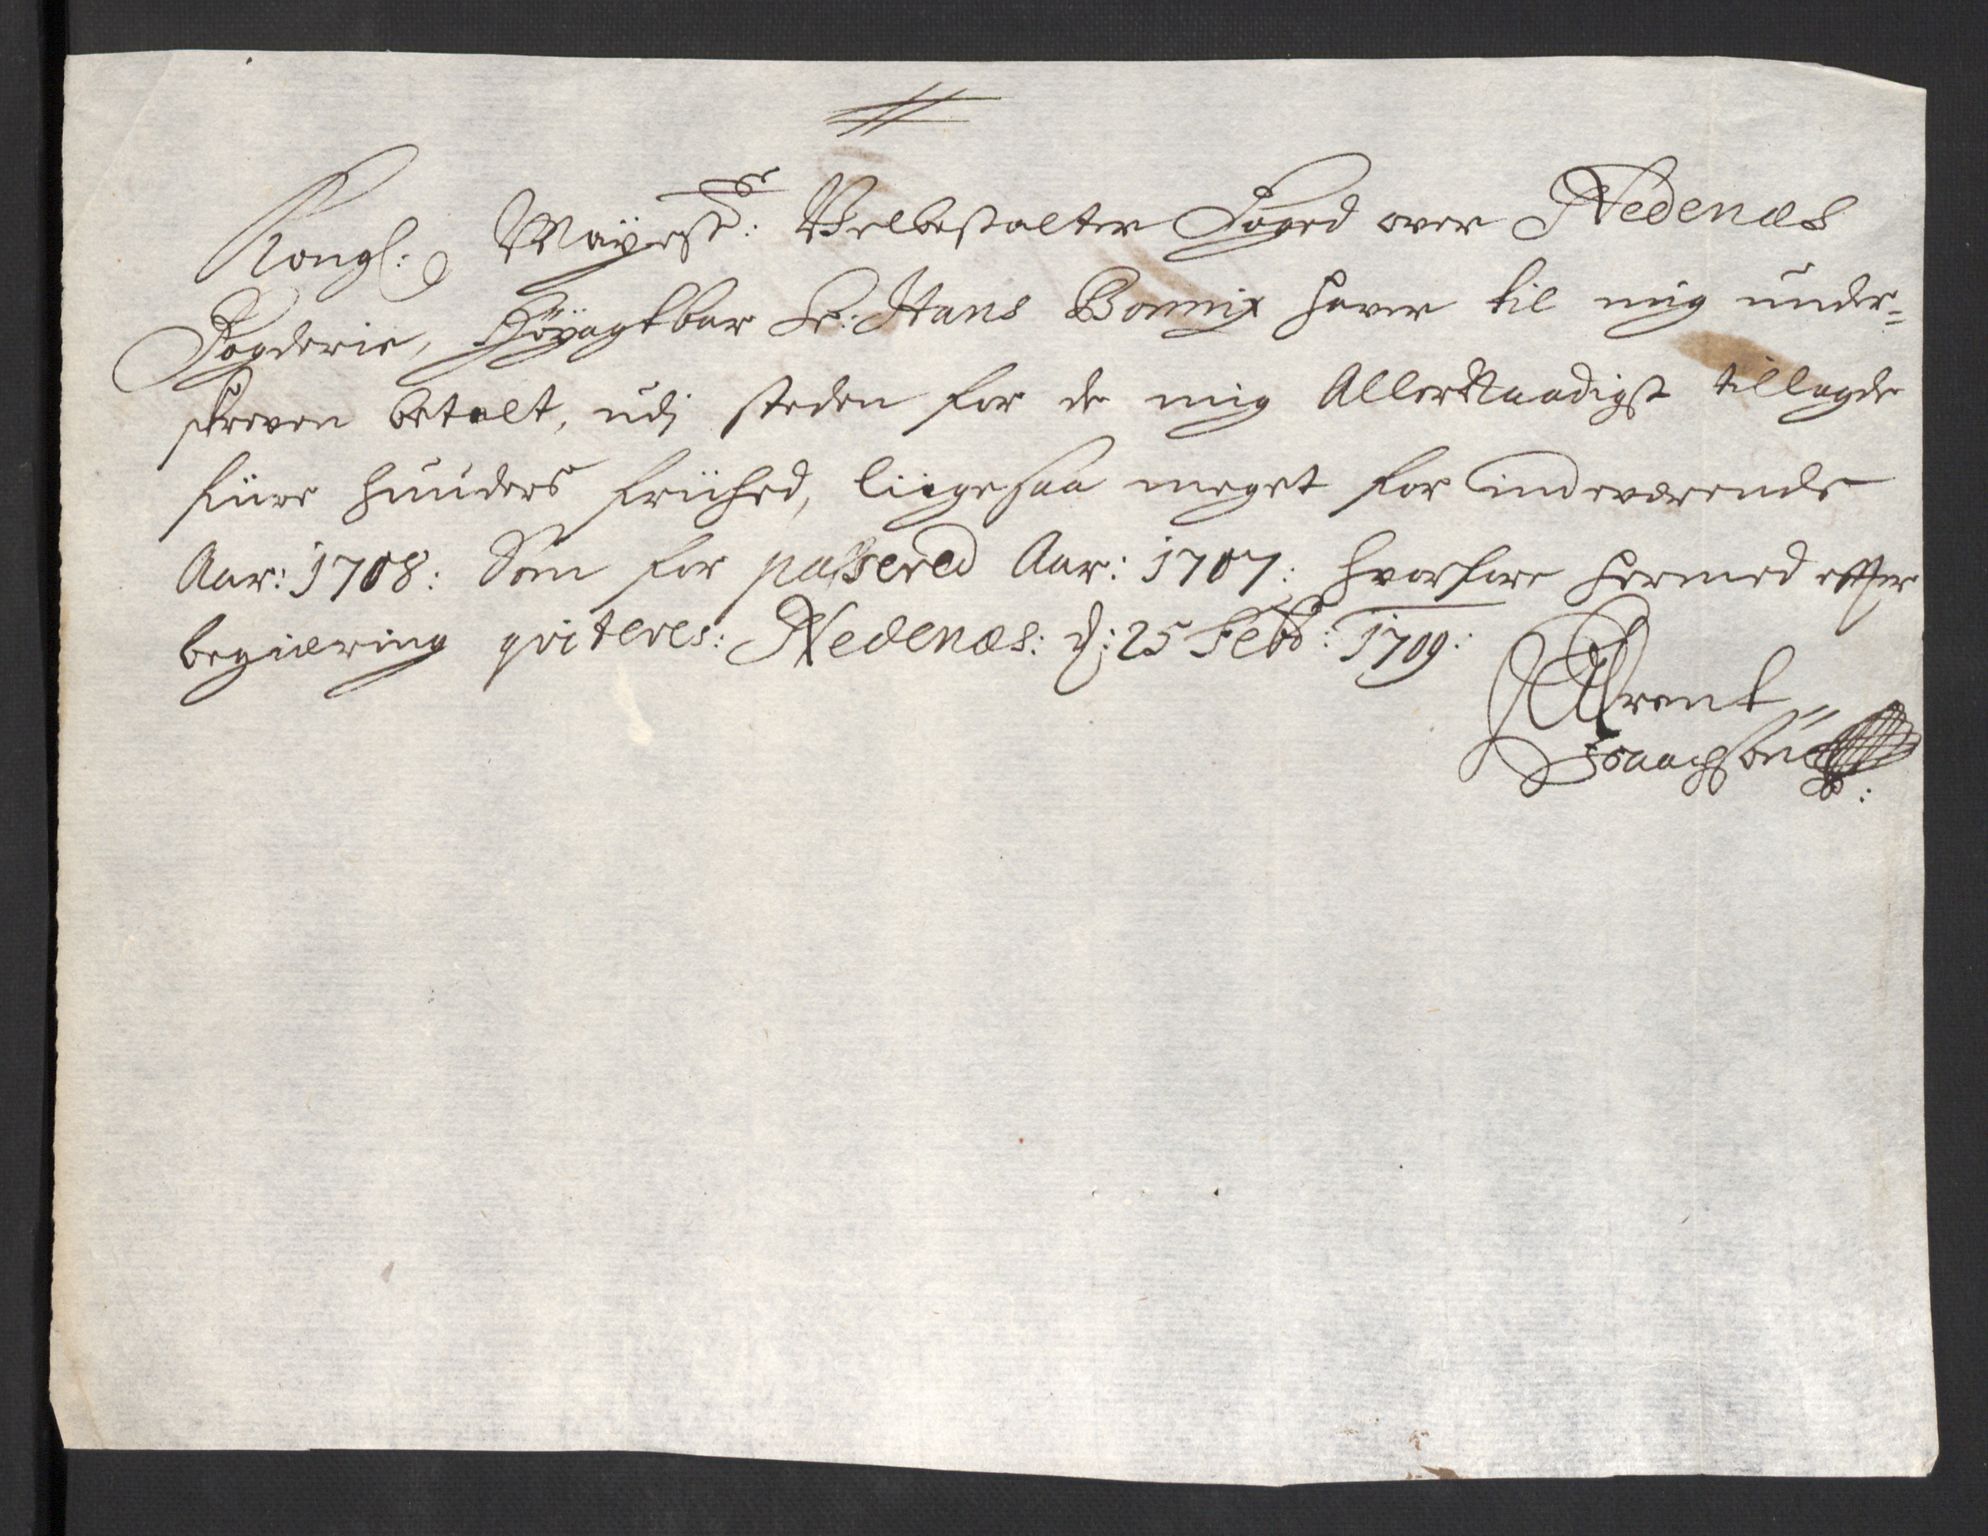 Kongl: Mayestts: Velbestalter Foged over Nedenæs
Fogderie, Höyagtbar Sr: Hans Bomix haver til mig under-
skreven betalt, udj steden for de mig Allernaadigst tillagde
fiire huuders friihed, liigesaa meget for indeværende
Aar: 1708: Som for passered Aar: 1707: hvorfore hermed effter
begiæring qviteres: Nedenæs: d: 25 Febr: 1709:
Arent
Isaachsøn